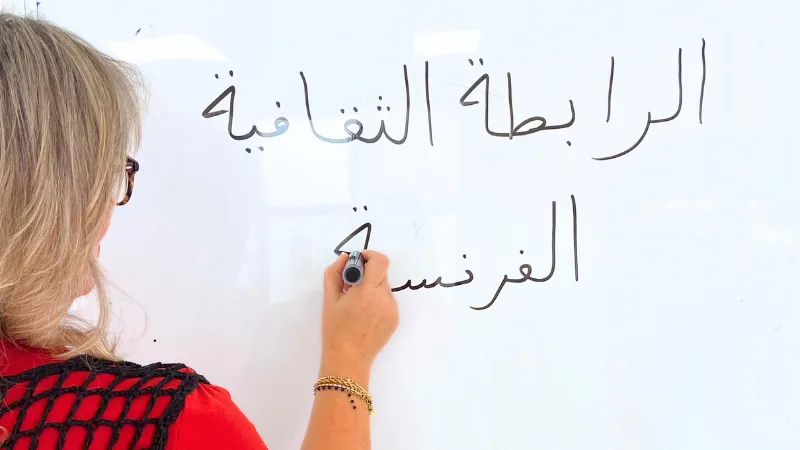 الرابطة الثقافية
الفرنسية